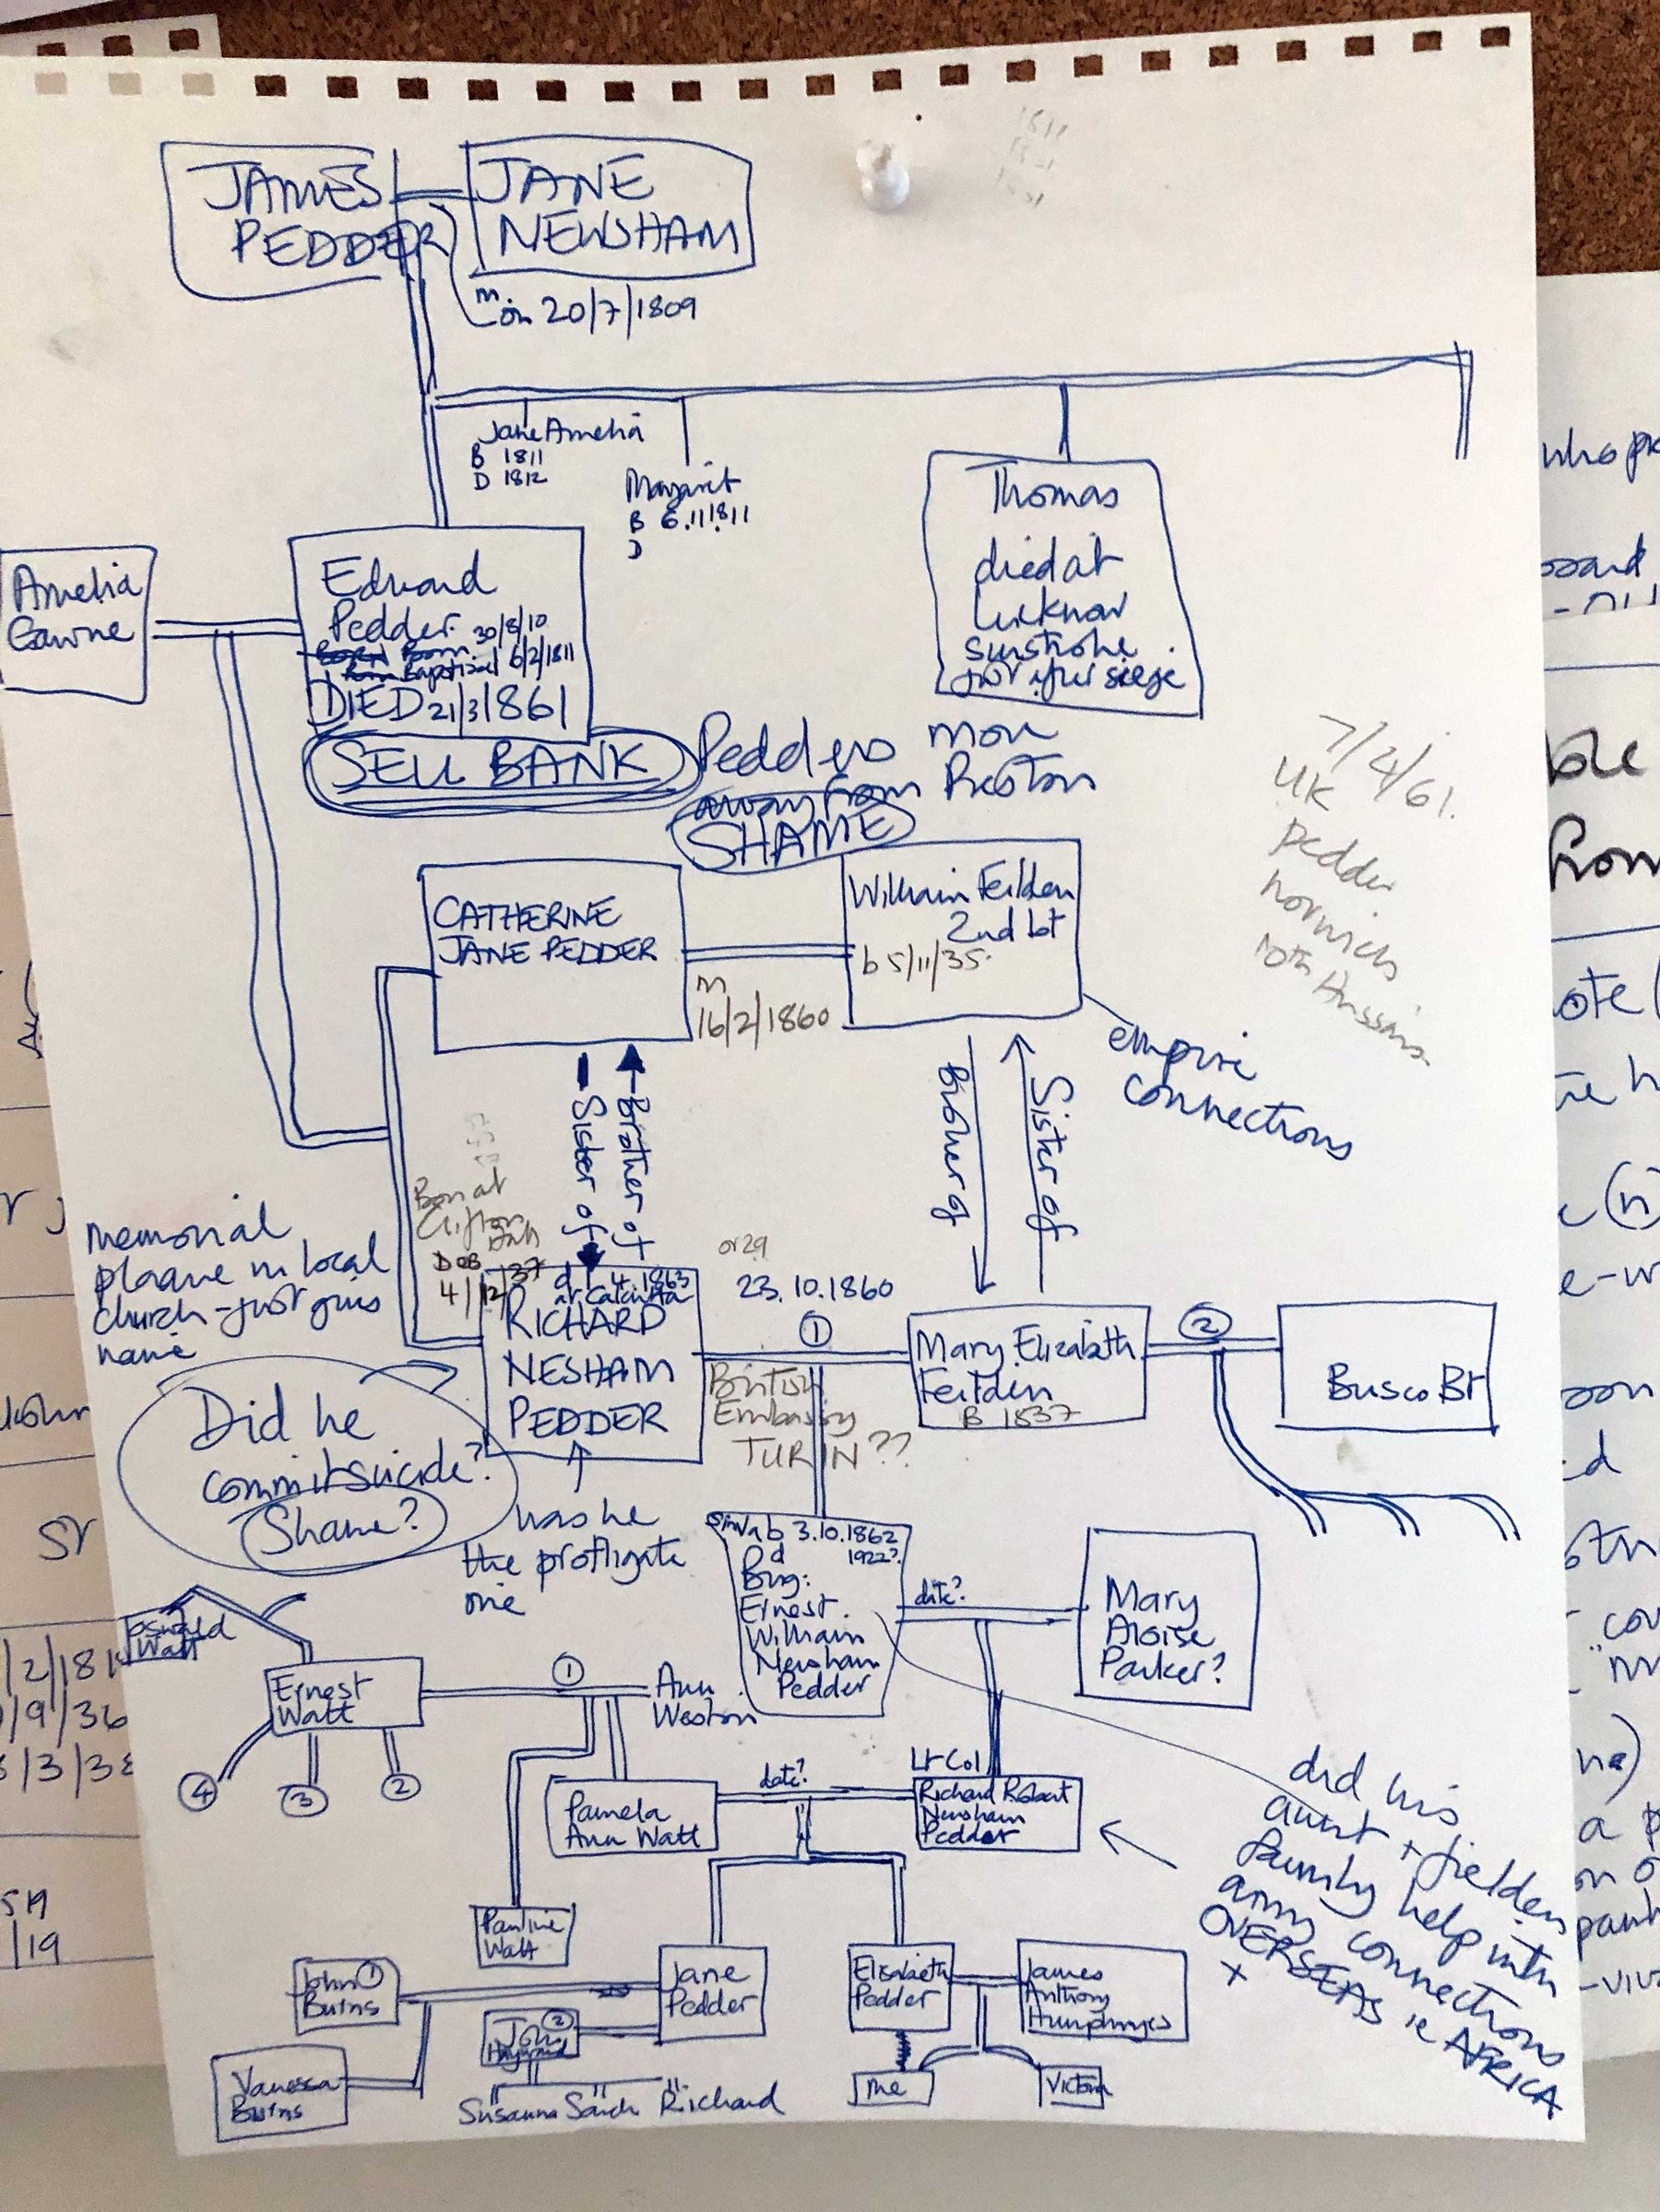 JAMES
PEDDER
JANE
NEWSHAM
m.
on 20/7/1809
Jane Amelia
B 1811
D 1812
Margaret
B 6.11.1811
D
Thomas
died at
Lucknow
sunstroke
just after siege
Amelia
Gawne
Edward
Pedder 30/8/10
Born
Baptised 6/2/1811
DIED 21/3/1861
SELL BANK
Pedders move
away from Preston
SHAME
7/4/61.
UK
Pedder
norwich
10th Hussars
CATHERINE
JANE PEDDER
m
16/2/1860
William Feilden
2nd bt
b 5/11/35.
empire
connections
Sister of
Brother of
Brother of
Sister of
Born at
Clifton
DOB
4/12/37
memorial
plaque in local
church - just gives
name
d 4.1863
at Calcutta
RICHARD
NESHAM
PEDDER
or 29
23.10.1860
①
British
Embassy
TURIN??
Mary Elizabeth
Feilden
B 1837
②
Busco Bt
Did he
commit suicide?
Shame?
was he
the profligate
one
b 3.10.1862
d 1922?
Brig:
Ernest
William
Newsham
Pedder
date?
Mary
Aloise
Parker?
Oswald
Watt
Ernest
Watt
①
Ann
Weston
④
③
②
Pamela
Ann Watt
date?
Lt Col
Richard Robert
Newsham
Pedder
did his
aunt + fielden
family help with
army connections
OVERSEAS ie AFRICA
+
Pauline
Watt
John ①
Burns
Jane
Pedder
Elizabeth
Pedder
James
Anthony
Humphreys
John ②
Hayward
Vanessa
Burns
Susanna Sarah Richard
me
Victoria